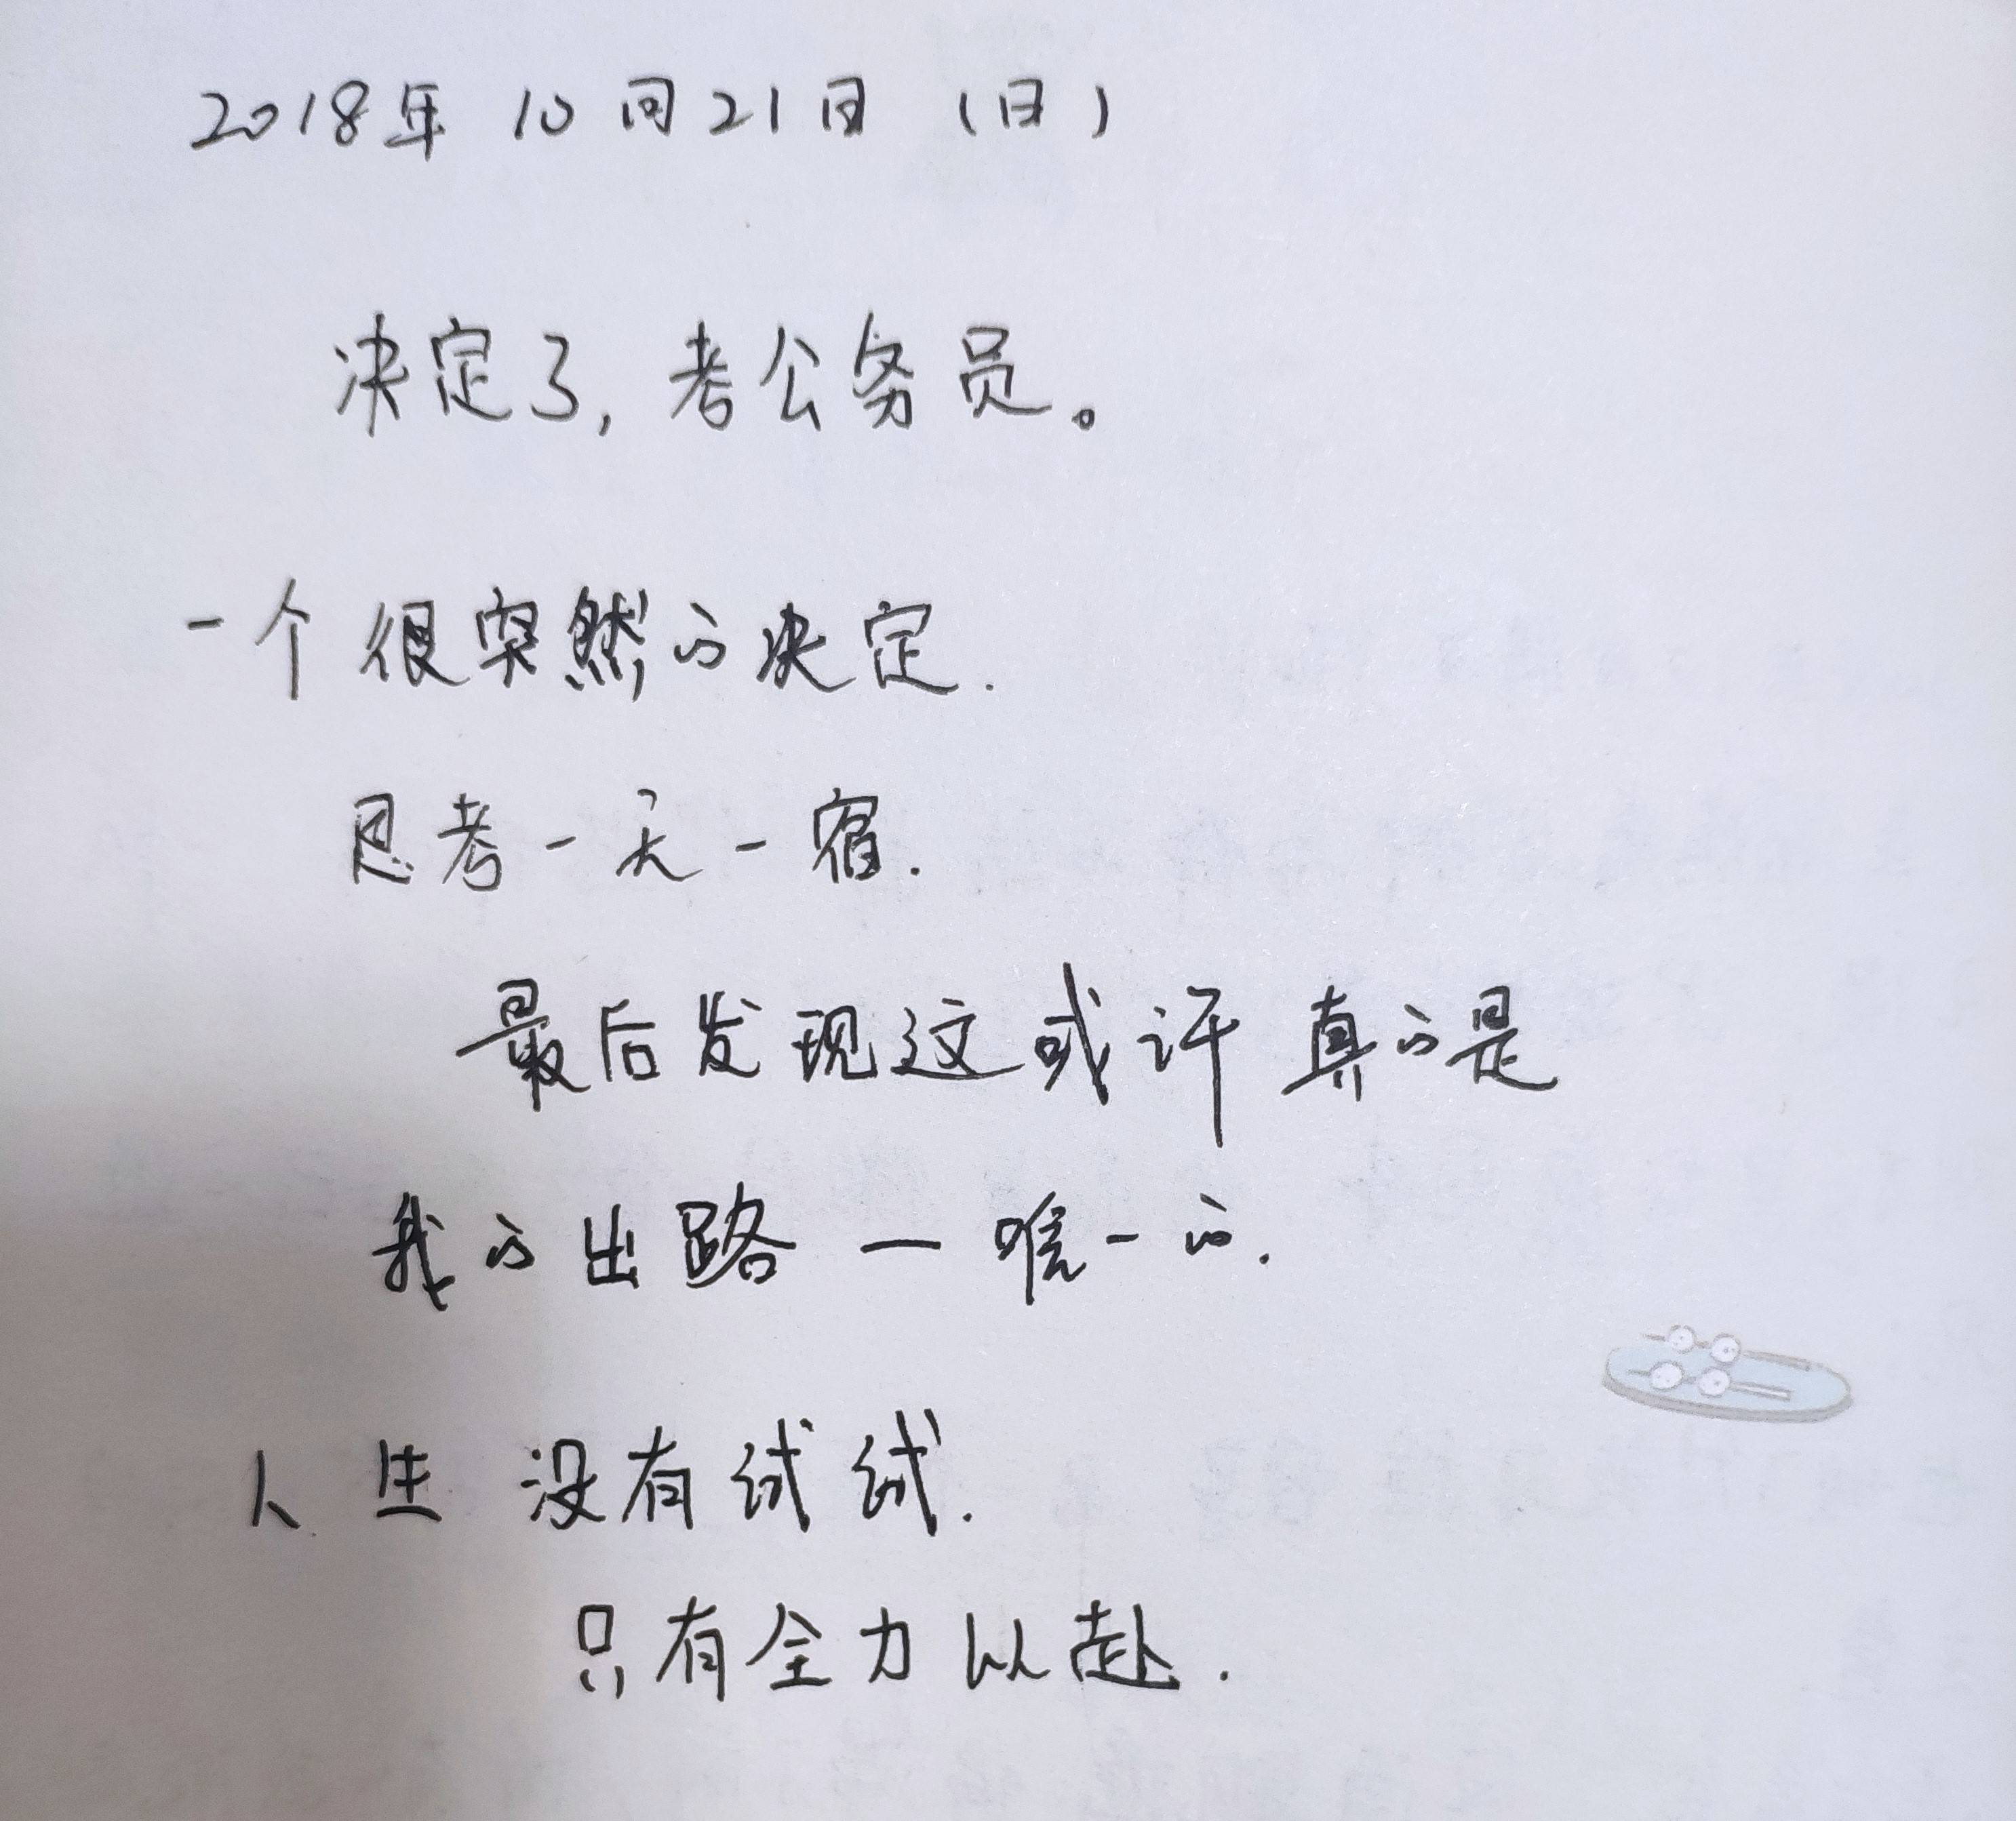 2018年 10月21日 (日)
决定了, 考公务员。
一个很突然的决定.
思考一天一宿.
最后发现这或许真的是
我的出路 — 唯一的.
人生 没有试试.
只有全力以赴.